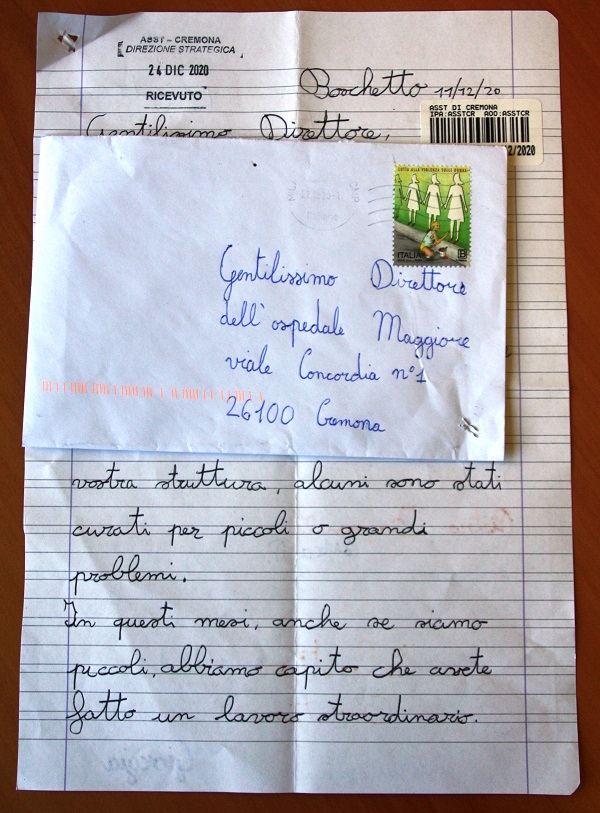 ASST - CREMONA
DIREZIONE STRATEGICA
24 DIC 2020
RICEVUTO
Boschetto 11/12/20
ASST DI CREMONA
IPA:ASSTCR AOO:ASSTCR
2/2020
Gentilissimo Direttore,
LOTTA ALLA VIOLENZA SULLE DONNE
ITALIA B
Gentilissimo Direttore
dell'ospedale Maggiore
viale Concordia n°1
26100 Cremona
vostra struttura, alcuni sono stati
curati per piccoli o grandi
problemi.
In questi mesi, anche se siamo
piccoli, abbiamo capito che avete
fatto un lavoro straordinario.
Giorgia